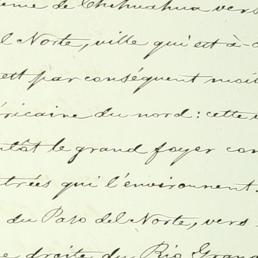 ême de Chihuahua vers
l Norte, ville qui est à-c
est par conséquent moit
éricaine du nord: cette
tôt le grand foyer com
trées qui l'environnent.
du Paso del Norte, vers
e droite du Rio Gran